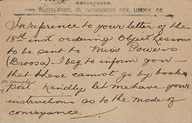 In reference to your letter of the
18th inst ordering Object Lessons
to be sent to Miss Powers
I beg to inform you
that these cannot go by book
Post. Kindly let me have your
instructions as to the mode of
conveyance.